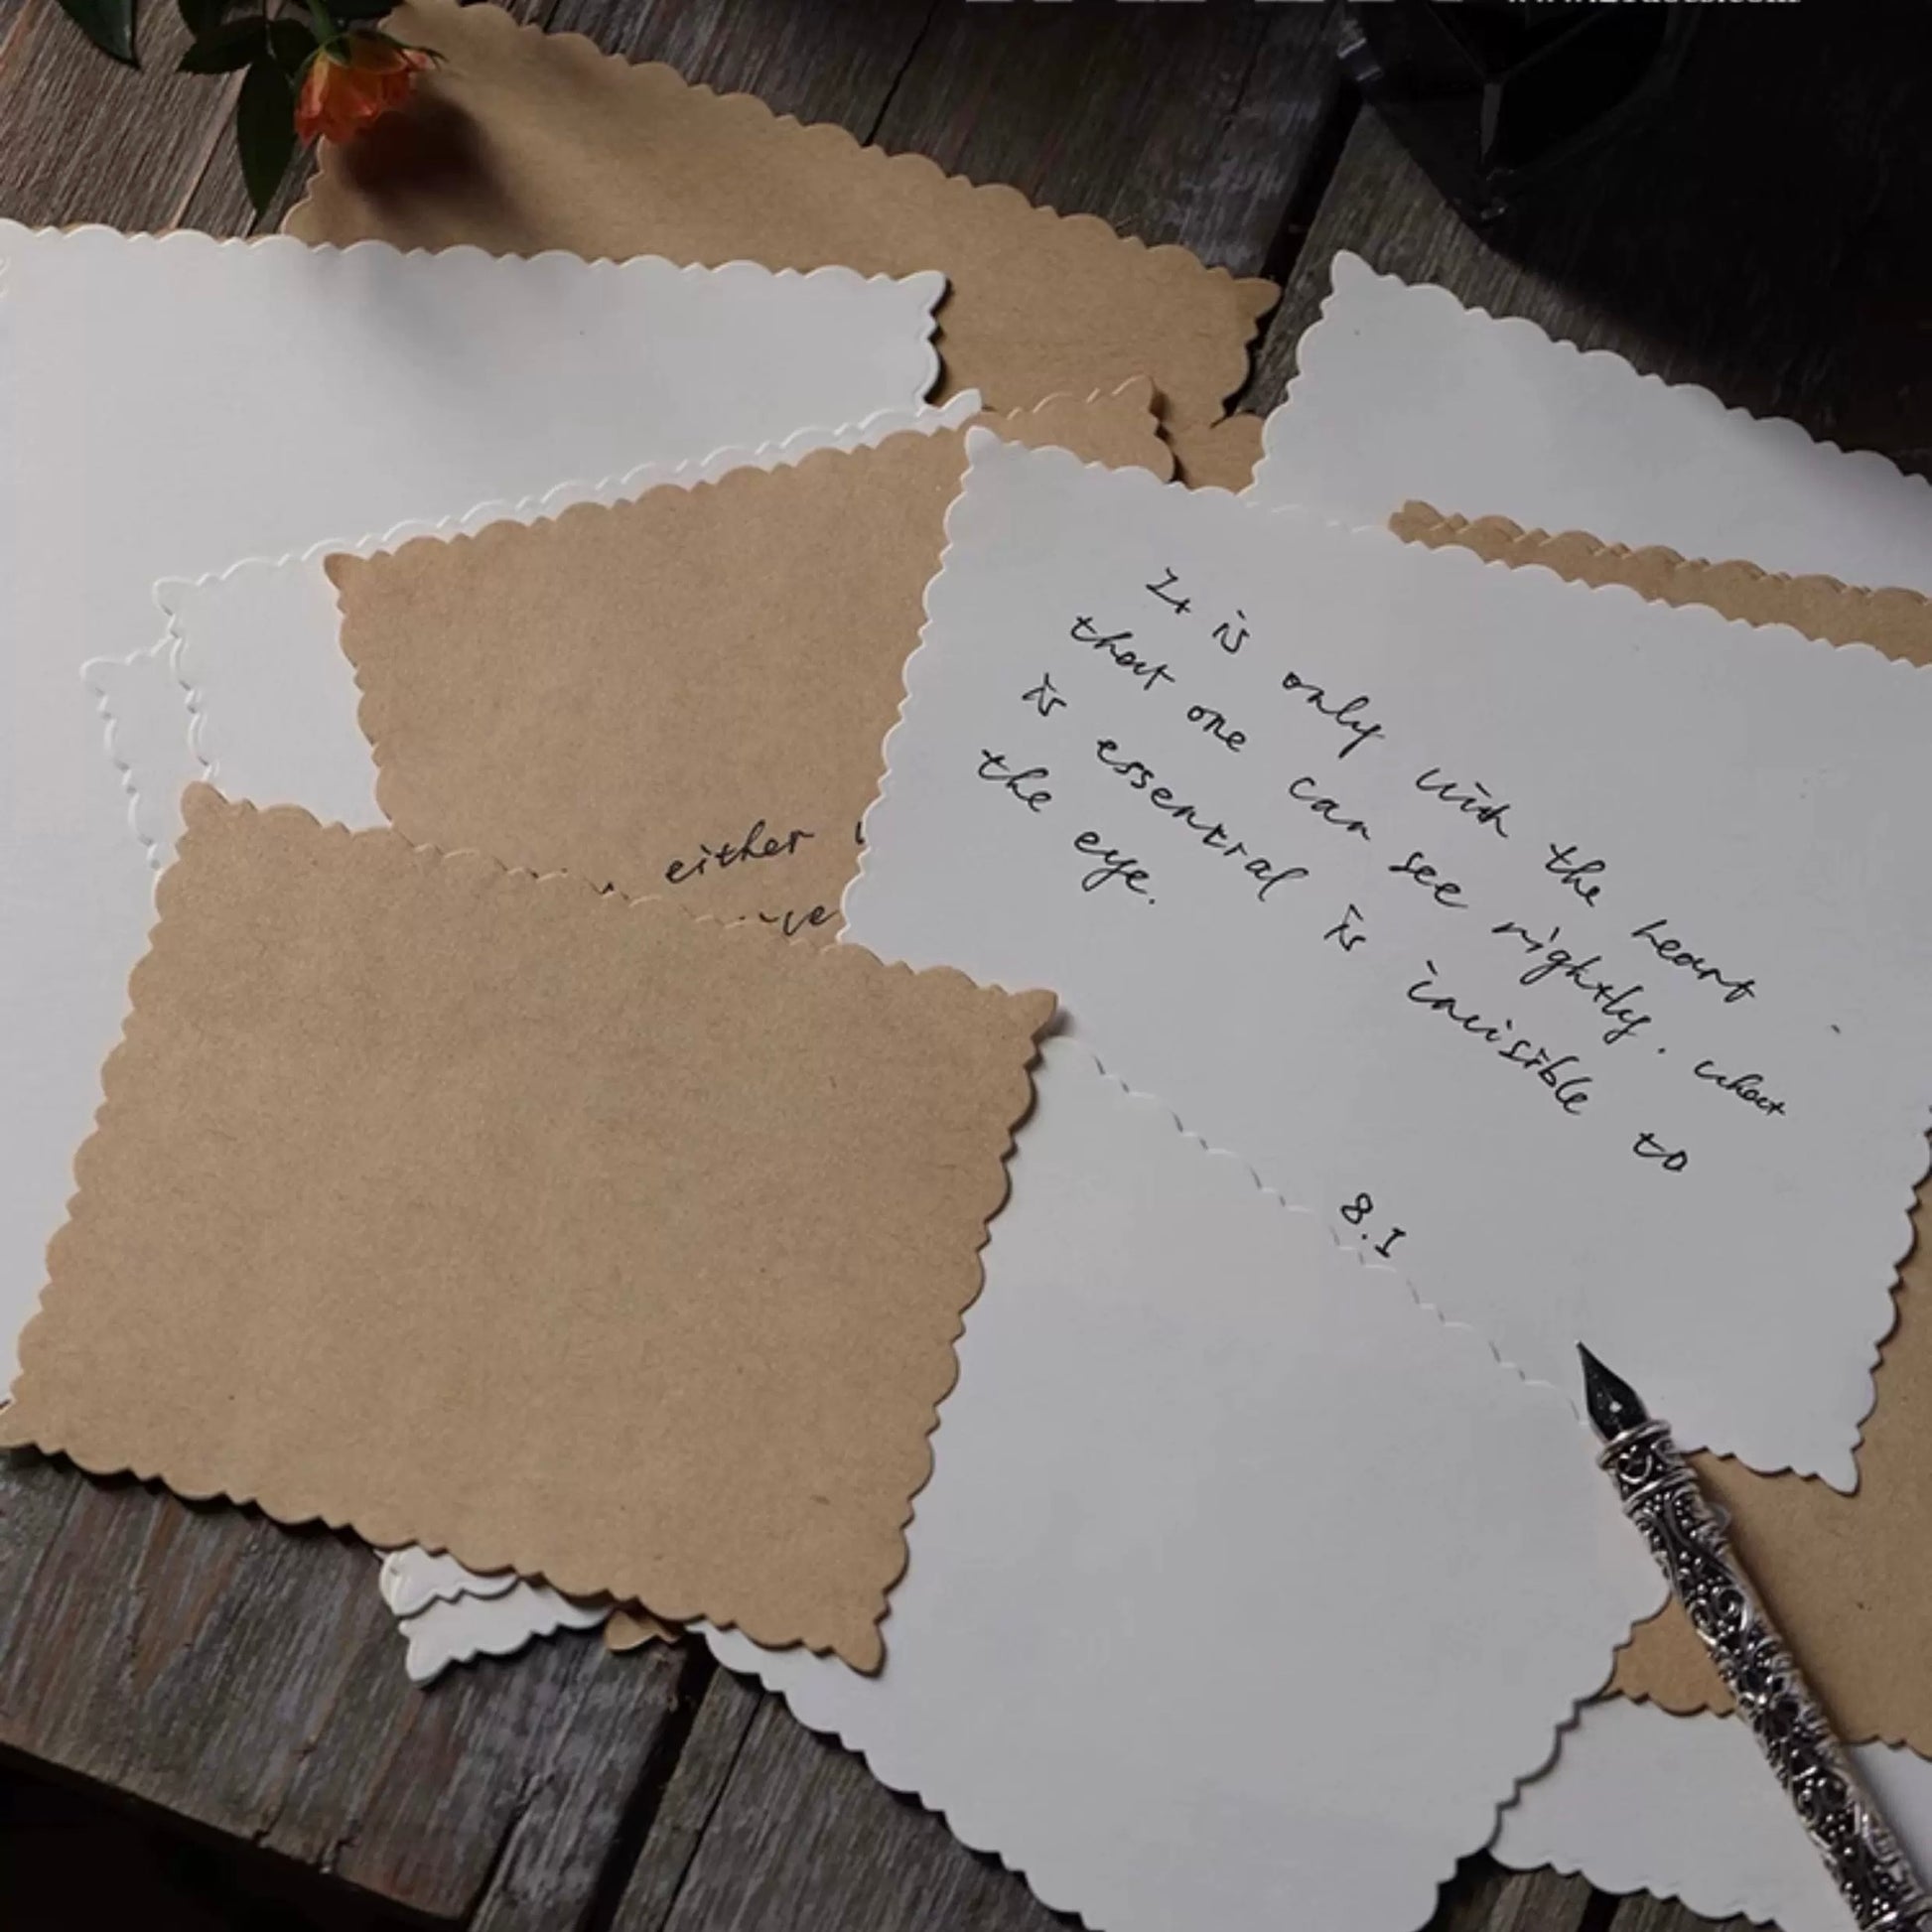 It is only with the heart
that one can see rightly. what
is essential is invisible to
the eye.
8.1
either